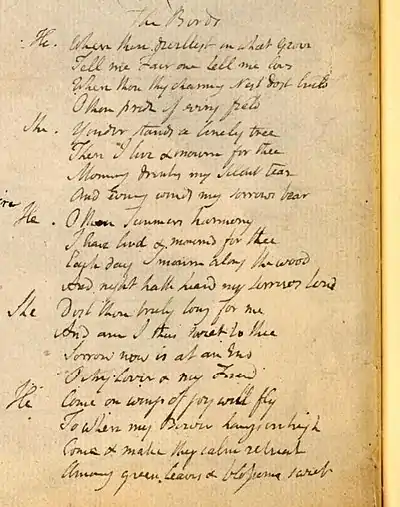 The Birds
He. Where thou dwellest in what Grove
Tell me Fair one tell me love
Where thou thy charming Nest dost build
O thou pride of every field
She. Yonder stands a lonely tree
There I live & mourn for thee
Morning drinks my silent tear
And Evening winds my sorrows bear
He. O thou Summers harmony
I have livd & mournd for thee
Each day I mourn along the wood
And night hath heard my sorrows loud
She Dost thou truly long for me
And am I thus sweet to thee
Sorrow now is at an End
O My Lover & my Friend
He Come on wings of joy well fly
To where my Bower hangs on high
Come & make thy calm retreat
Among green leaves & blossoms sweet